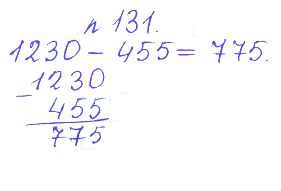 n 131.
1230 - 455 = 775.
- 1230
455
775